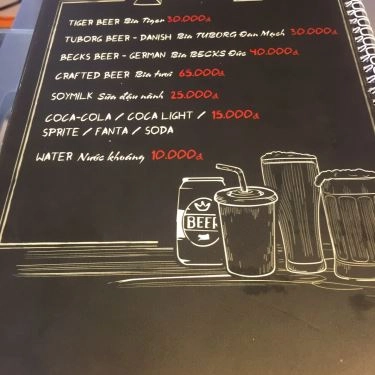 TIGER BEER Bia Tiger 30.000đ
TUBORG BEER - DANISH Bia TUBORG Đan Mạch 30.000đ
BECKS BEER - GERMAN Bia BECKS Đức 40.000đ
CRAFTED BEER Bia tươi 65.000đ
SOYMILK Sữa đậu nành 25.000đ
COCA-COLA / COCA LIGHT / 15.000đ
SPRITE / FANTA / SODA
WATER Nước khoáng 10.000đ
BEER